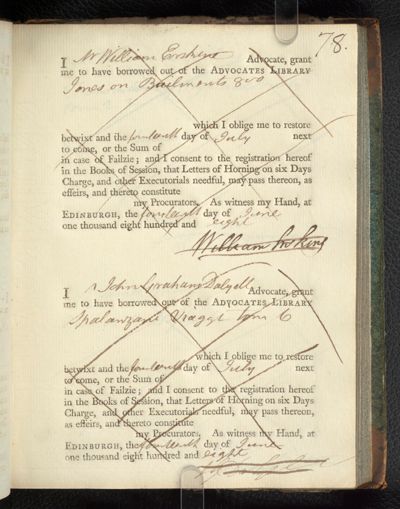 78.
I Mr William Erskine Advocate, grant
me to have borrowed out of the ADVOCATES LIBRARY
Jones on Bailments 8vo
which I oblige me to restore
betwixt and the fourteenth day of July next
to come, or the Sum of
in case of Failzie; and I consent to the registration hereof
in the Books of Session, that Letters of Horning on six Days
Charge, and other Executorials needful, may pass thereon, as
effeirs, and thereto constitute
my Procurators. As witness my Hand, at
EDINBURGH, the fourteenth day of June
one thousand eight hundred and eight
William Erskine
I John Graham Dalyell Advocate, grant
me to have borrowed out of the ADVOCATES LIBRARY
Spalanzani Viaggi tom 6
which I oblige me to restore
betwixt and the fourteenth day of July next
to come, or the Sum of
in case of Failzie; and I consent to the registration hereof
in the Books of Session, that Letters of Horning on six Days
Charge, and other Executorials needful, may pass thereon, as
effeirs, and thereto constitute
my Procurators. As witness my Hand, at
EDINBURGH, the fourteenth day of June
one thousand eight hundred and eight